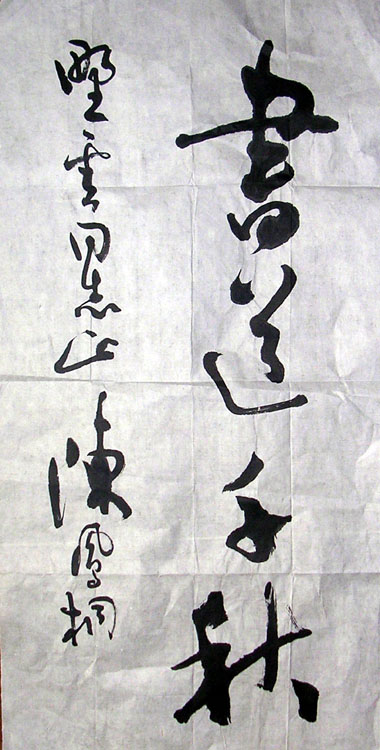 書道千秋
野雲同志正
陳鳳桐